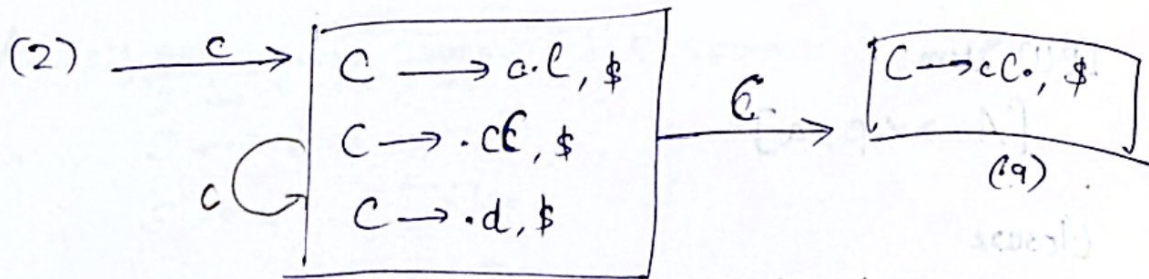 (2) c C → c·C, $ C C → cC·, $
C → ·cC, $
c C → ·d, $ (9)